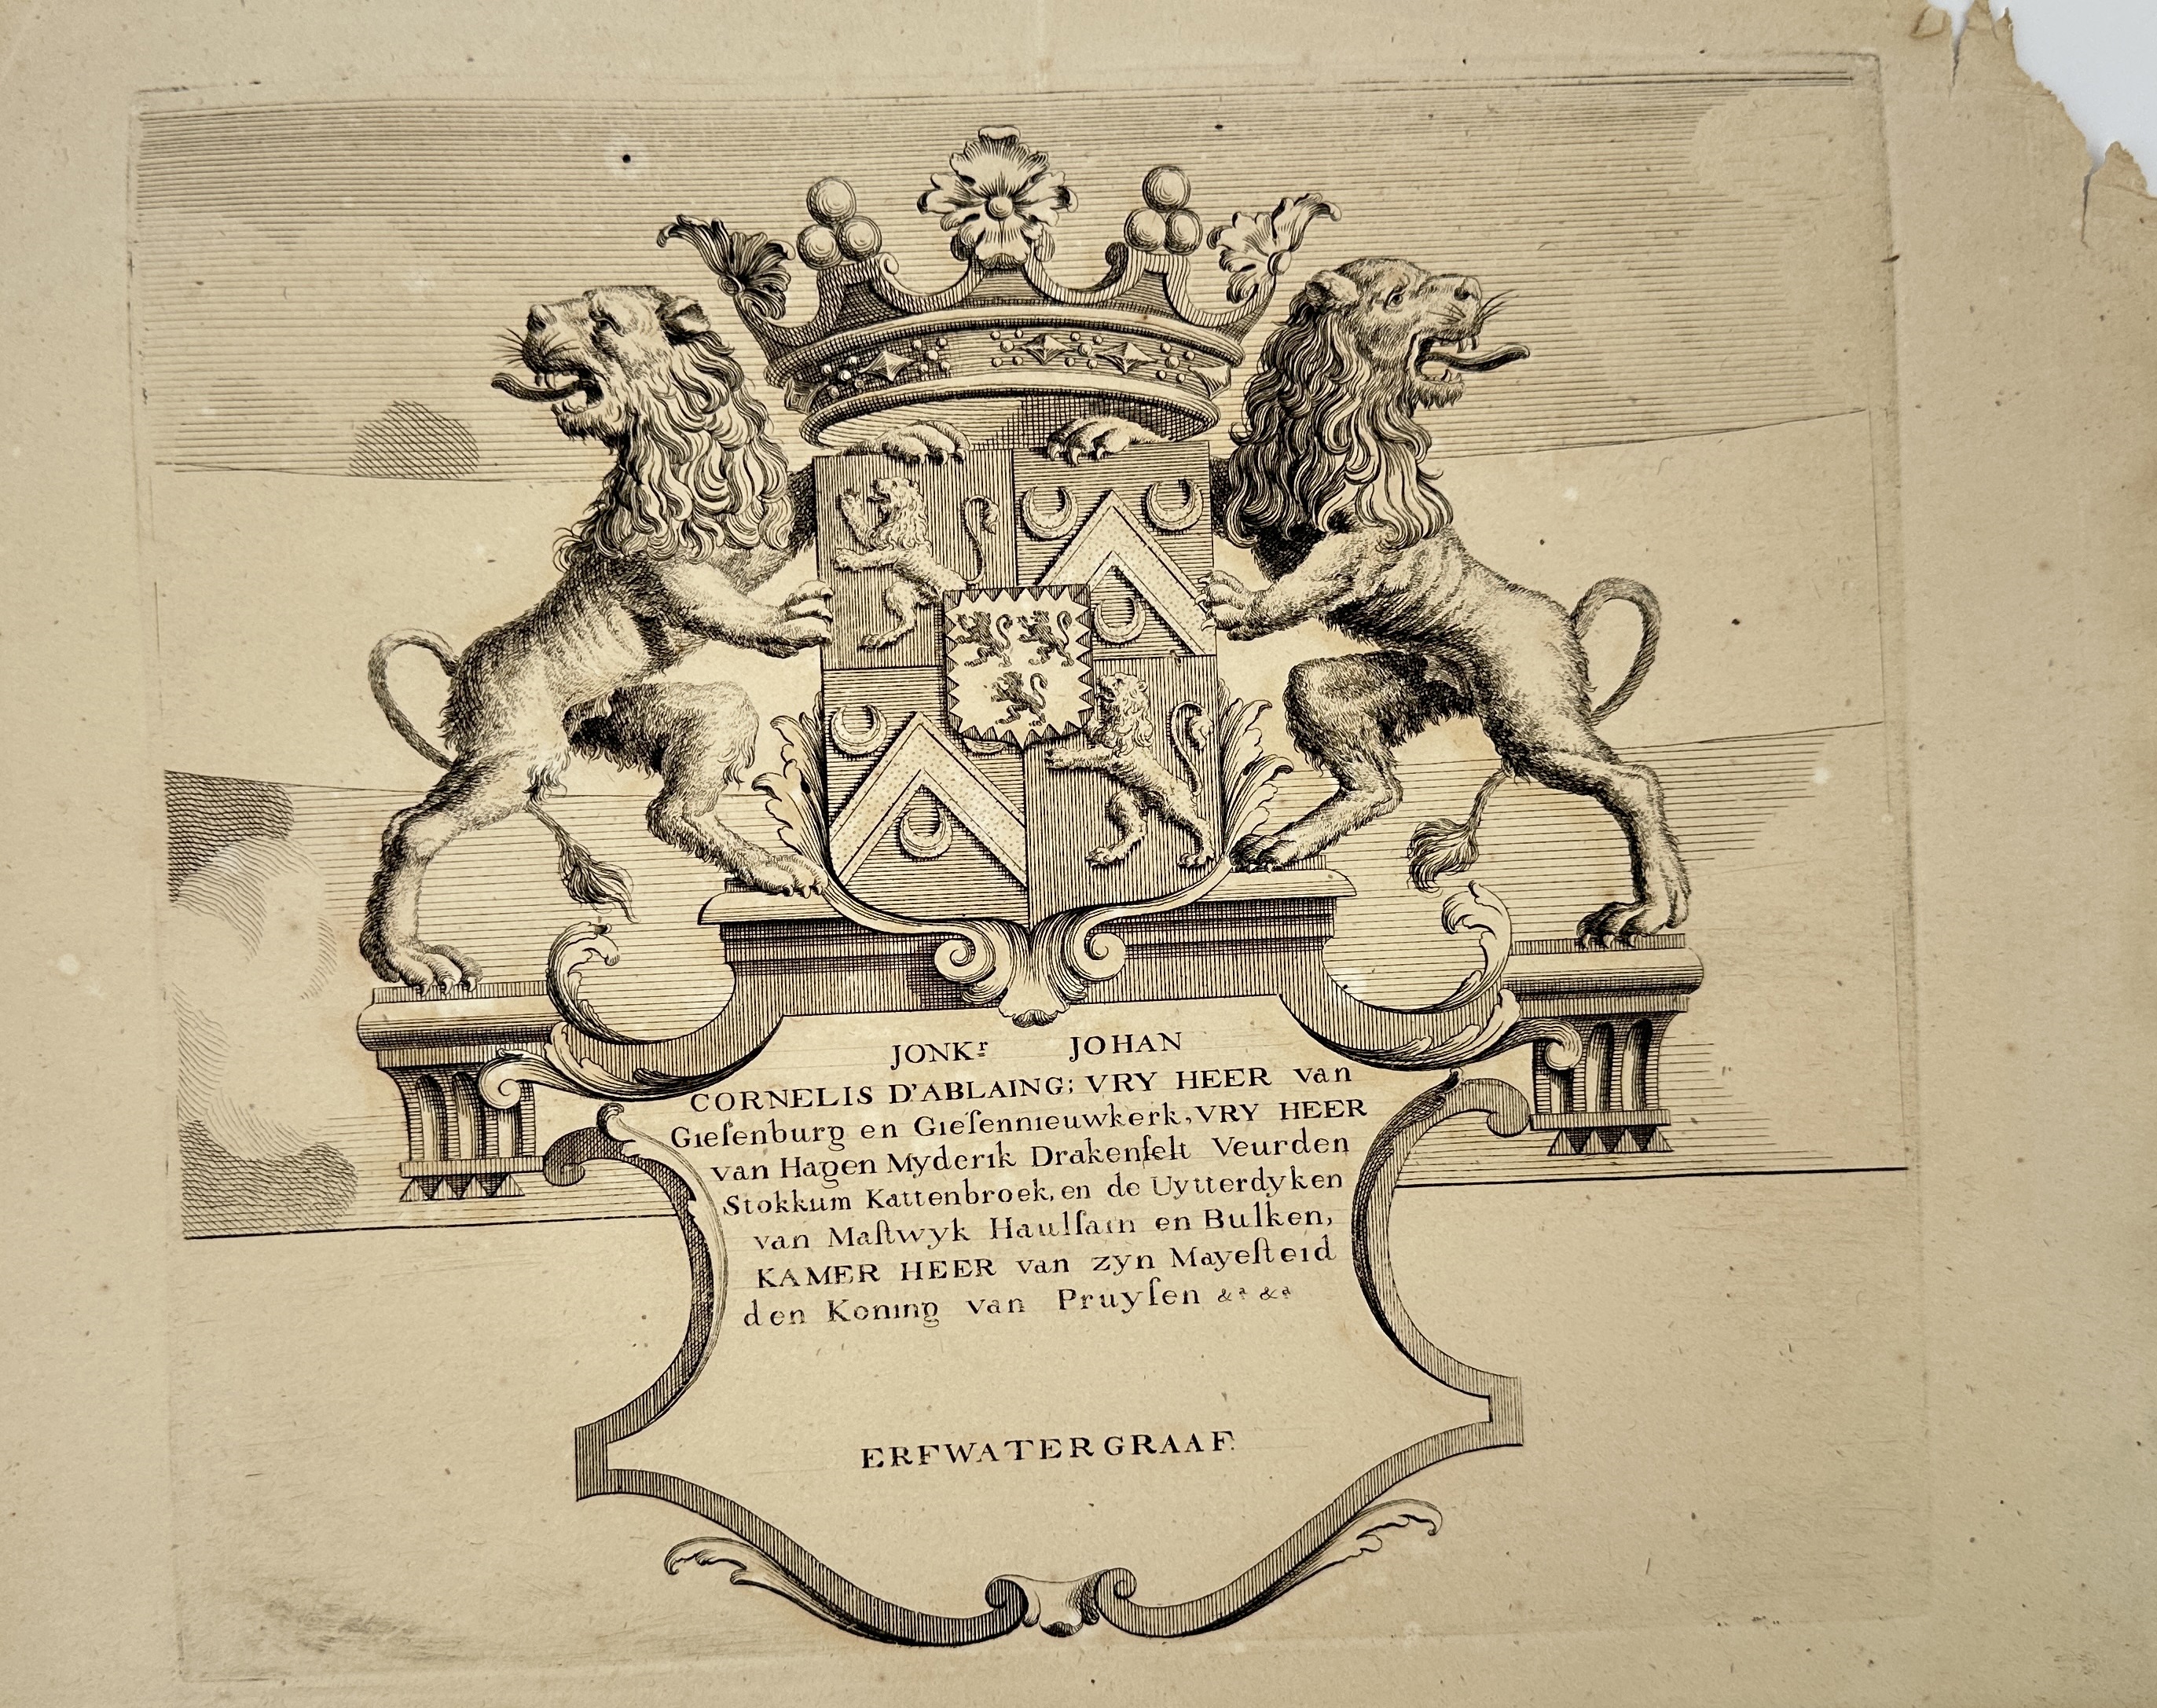 JONKr JOHAN
CORNELIS D'ABLAING; VRY HEER van
Gieſenburg en Gieſennieuwkerk, VRY HEER
van Hagen Myderik Drakenſelt Veurden
Stokkum Kattenbroek, en de Uytterdyken
van Maſtwyk Haulſain en Bulken,
KAMER HEER van zyn Mayeſteid
den Koning van Pruyſen &a &a
ERFWATERGRAAF.